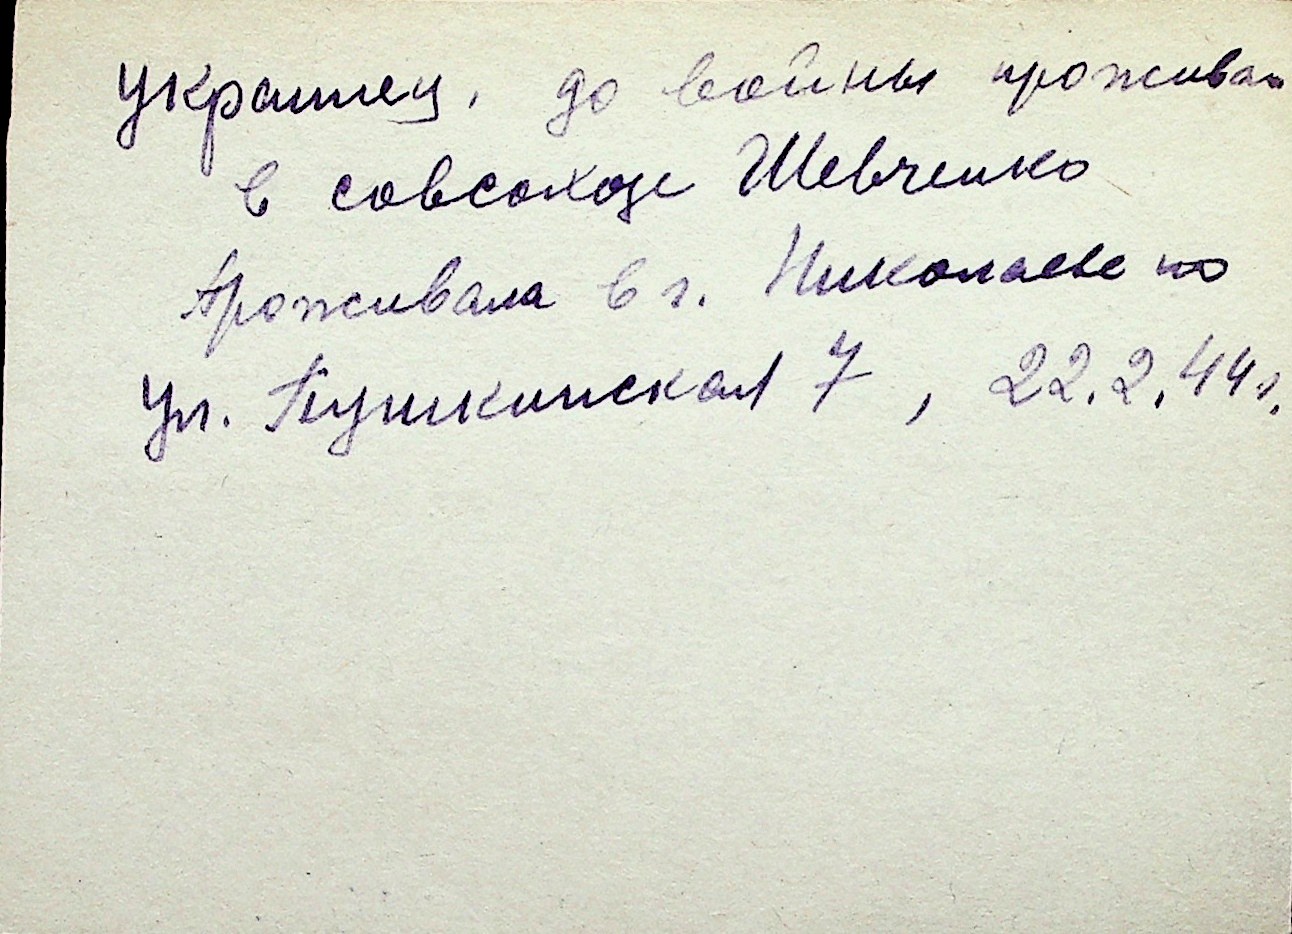 украинец, до войны проживал
в совсохозе Шевченко
Проживала в г. Николаеве по
ул. Пушкинская 7, 22.2.44г.